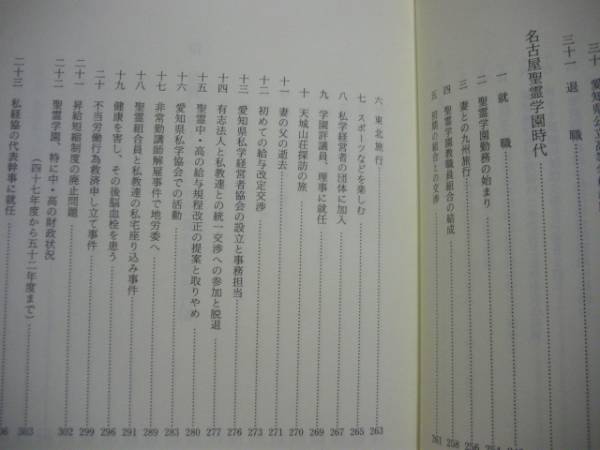 三十 愛知県公立高等学
三十一 退職
名古屋聖霊学園時代
一 就職
二 聖霊学園勤務の始まり 256
三 妻との九州旅行 256
四 聖霊学園教職員組合の結成 258
五 初期の組合との交渉 261
六 東北旅行 263
七 スポーツなどを楽しむ 265
八 私学経営者の団体に加入 267
九 学園評議員、理事に就任 269
十 天城山荘探訪の旅 270
十一 妻の父の逝去 271
十二 初めての給与改定交渉 273
十三 愛知県私学経営者協会の設立と事務担当 276
十四 有志法人と私教連との統一交渉への参加と脱退 277
十五 聖霊中・高の給与規程改正の提案と取りやめ 280
十六 愛知県私学協会での活動 283
十七 非常勤講師解雇事件で地労委へ 289
十八 聖霊組合員と私教連の私宅座り込み事件 291
十九 健康を害し、その後脳血栓を患う 296
二十 不当労働行為救済申し立て事件 299
二十一 昇給短縮制度の廃止問題 302
二十二 聖霊学園、特に中・高の財政状況
(四十七年度から五十二年度まで) 303
二十三 私経協の代表幹事に就任